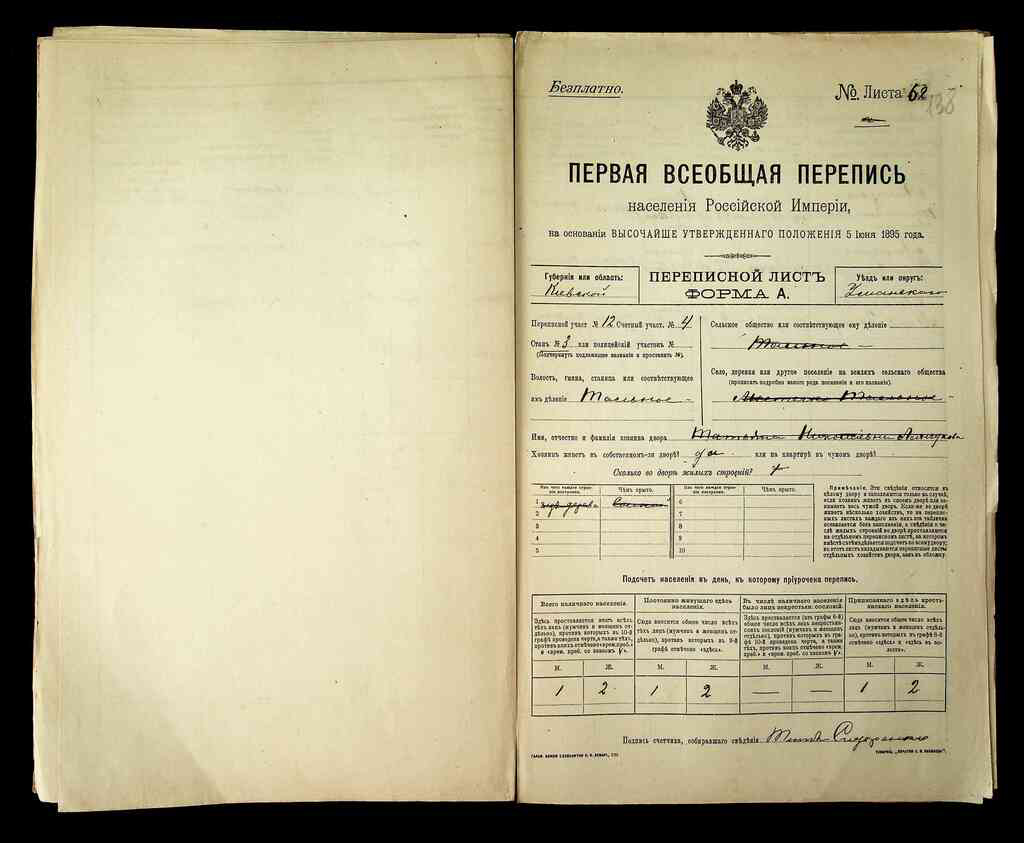 Безплатно.
№ Листа 62
138
ПЕРВАЯ ВСЕОБЩАЯ ПЕРЕПИСЬ
населенія Россійской Имперіи,
на основаніи ВЫСОЧАЙШЕ УТВЕРЖДЕННАГО ПОЛОЖЕНІЯ 5 Іюня 1895 года.
Губернія или область:
Кіевской
ПЕРЕПИСНОЙ ЛИСТЪ
ФОРМА А.
Уѣздъ или округъ:
Уманскаго
Переписной участ. № 12 Счетный участ. № 4
Станъ № 3 или полицейскій участокъ №
(Подчеркнуть подлежащее названіе и проставить №).
Волость, гмина, станица или соотвѣтствующее
имъ дѣленіе Тальное
Сельское общество или соотвѣтствующее ему дѣленіе
Тальное
Село, деревня или другое поселеніе на земляхъ сельскаго общества
(прописать подробно какого рода поселеніе и его названіе).
Мѣстечко Тальное
Имя, отчество и фамилія хозяина двора
Хозяинъ живетъ въ собственномъ-ли дворѣ? да или на квартирѣ въ чужомъ дворѣ?
Сколько во дворѣ жилыхъ строеній? 1
Изъ чего каждое строеніе построено.
Чѣмъ крыто.
Изъ чего каждое строеніе построено.
Чѣмъ крыто.
1 изъ дерева
6
2
7
3
8
4
9
5
10
Примѣчаніе. Эти свѣдѣнія относятся къ
цѣлому двору и заполняются только въ случаѣ,
если хозяинъ живетъ въ своемъ дворѣ или за-
нимаетъ весь чужой дворъ. Если-же во дворѣ
живетъ нѣсколько хозяйствъ, то на перепис-
ныхъ листахъ каждаго изъ нихъ эта табличка
оставляется безъ заполненія, а свѣдѣнія о чи-
слѣ жилыхъ строеній во дворѣ проставляются
на отдѣльномъ переписномъ листѣ, на которомъ
вмѣстѣ съ тѣмъ дѣлается подсчетъ по всему двору;
въ этотъ листъ вкладываются переписные листы
отдѣльныхъ хозяйствъ двора, какъ въ обложку.
Подсчетъ населенія въ день, къ которому пріурочена перепись.
Всего наличнаго населенія.
Постоянно живущаго здѣсь населенія.
Въ числѣ наличнаго населенія было лицъ некрестьян. сословій.
Приписаннаго здѣсь крестьянскаго населенія.
Здѣсь проставляется итогъ всѣхъ
тѣхъ лицъ (мужчинъ и женщинъ от-
дѣльно), противъ которыхъ въ 10-й
графѣ проведена черта, а также тѣхъ,
противъ коихъ отмѣчено «врем. преб.»
и «врем. преб. со знакомъ V».
Сюда вносится общее число всѣхъ
тѣхъ лицъ (мужчинъ и женщинъ от-
дѣльно), противъ которыхъ въ 9-й
графѣ отмѣчено «здѣсь».
Здѣсь проставляется (изъ графы 6-й)
общее число всѣхъ лицъ некрестьян-
скихъ сословій (мужчинъ и женщинъ
отдѣльно), противъ которыхъ въ гра-
фѣ 10-й проведена черта, а также
тѣхъ, противъ коихъ отмѣчено «врем.
преб.» и «врем. преб. со знакомъ V».
Сюда вносится общее число всѣхъ
лицъ (мужчинъ и женщинъ отдѣль-
но), противъ которыхъ въ графѣ 8-й
отмѣчено «здѣсь» и «здѣсь въ во-
лости».
М. Ж. М. Ж. М. Ж. М. Ж.
1 2 1 2 — — 1 2
Подпись счетчика, собиравшаго свѣдѣнія